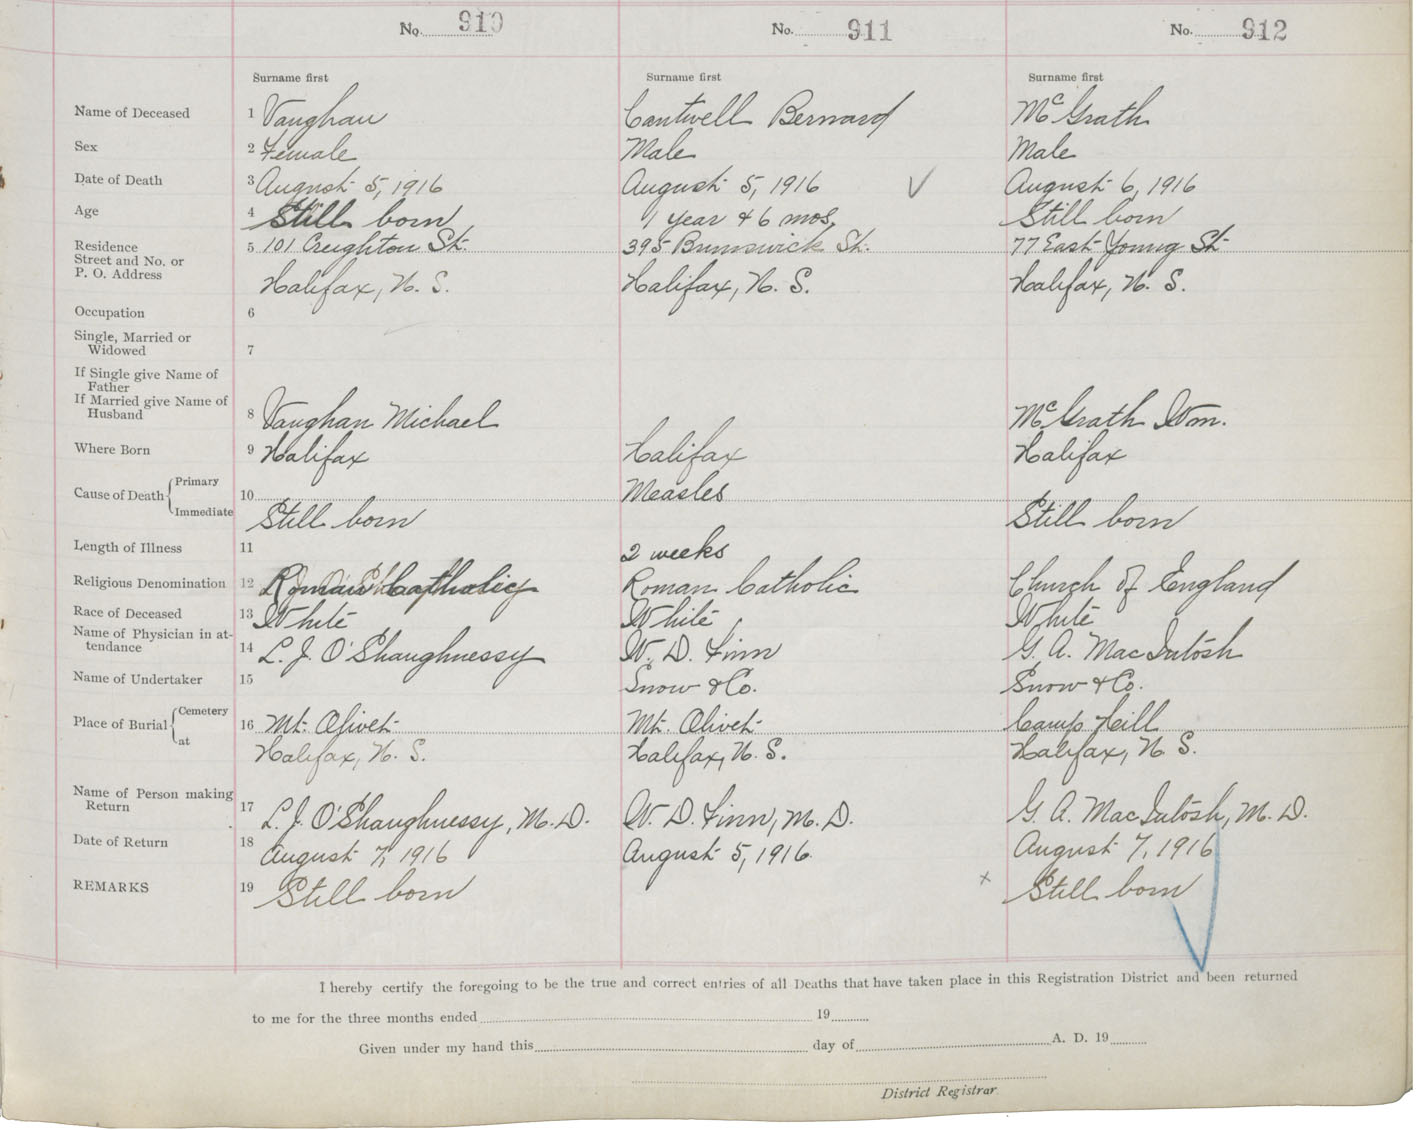 No. 910 No. 911 No. 912
Surname first Surname first Surname first
Name of Deceased 1 Vaughan Cantwell Bernard McGrath
Sex 2 Female Male Male
Date of Death 3 August 5, 1916 August 5, 1916 August 6, 1916
Age 4 Still born 1 year & 6 mos. Still born
Residence
Street and No. or 5 101 Creighton St. 395 Brunswick St. 77 East Young St.
P. O. Address Halifax, N. S. Halifax, N. S. Halifax, N. S.
Occupation 6
Single, Married or
Widowed 7
If Single give Name of
Father
If Married give Name of
Husband 8 Vaughan Michael McGrath Wm.
Where Born 9 Halifax Halifax Halifax
Cause of Death Primary 10 Measles
Immediate Still born Still born
Length of Illness 11 2 weeks
Religious Denomination 12 Roman Catholic Roman Catholic Church of England
Race of Deceased 13 White White White
Name of Physician in at-
tendance 14 L. J. O'Shaughnessy W. D. Finn G. A. MacIntosh
Name of Undertaker 15 Snow & Co. Snow & Co.
Place of Burial Cemetery 16 Mt. Olivet Mt. Olivet Camp Hill
at Halifax, N. S. Halifax, N. S. Halifax, N. S.
Name of Person making
Return 17 L. J. O'Shaughnessy, M. D. W. D. Finn, M. D. G. A. MacIntosh, M. D.
Date of Return 18 August 7, 1916 August 5, 1916 August 7, 1916
REMARKS 19 Still born Still born
I hereby certify the foregoing to be the true and correct entries of all Deaths that have taken place in this Registration District and been returned
to me for the three months ended 19
Given under my hand this day of A. D. 19
District Registrar